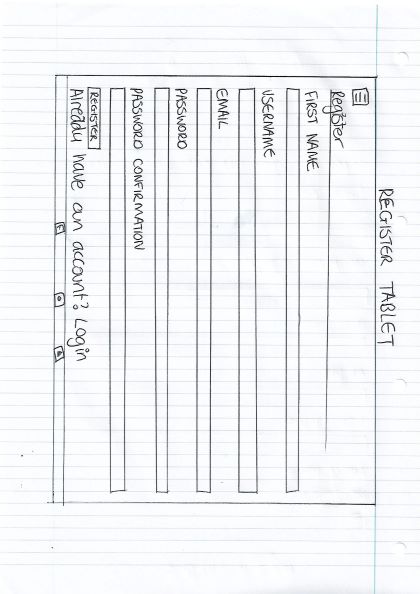 REGISTER TABLET
Register
FIRST NAME
USERNAME
EMAIL
PASSWORD
PASSWORD CONFIRMATION
REGISTER
Already have an account? Login